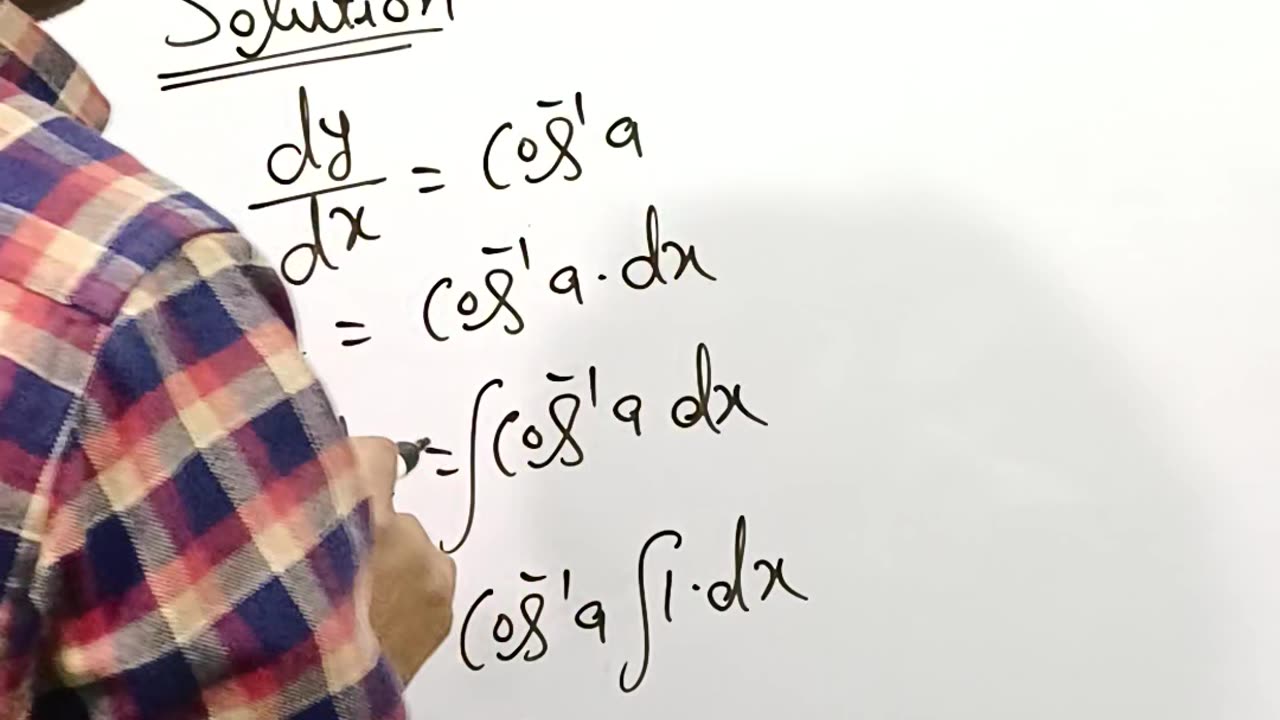 Solution
dy/dx = Cos⁻¹ a
= Cos⁻¹ a · dx
= ∫ Cos⁻¹ a dx
Cos⁻¹ a ∫ 1 · dx